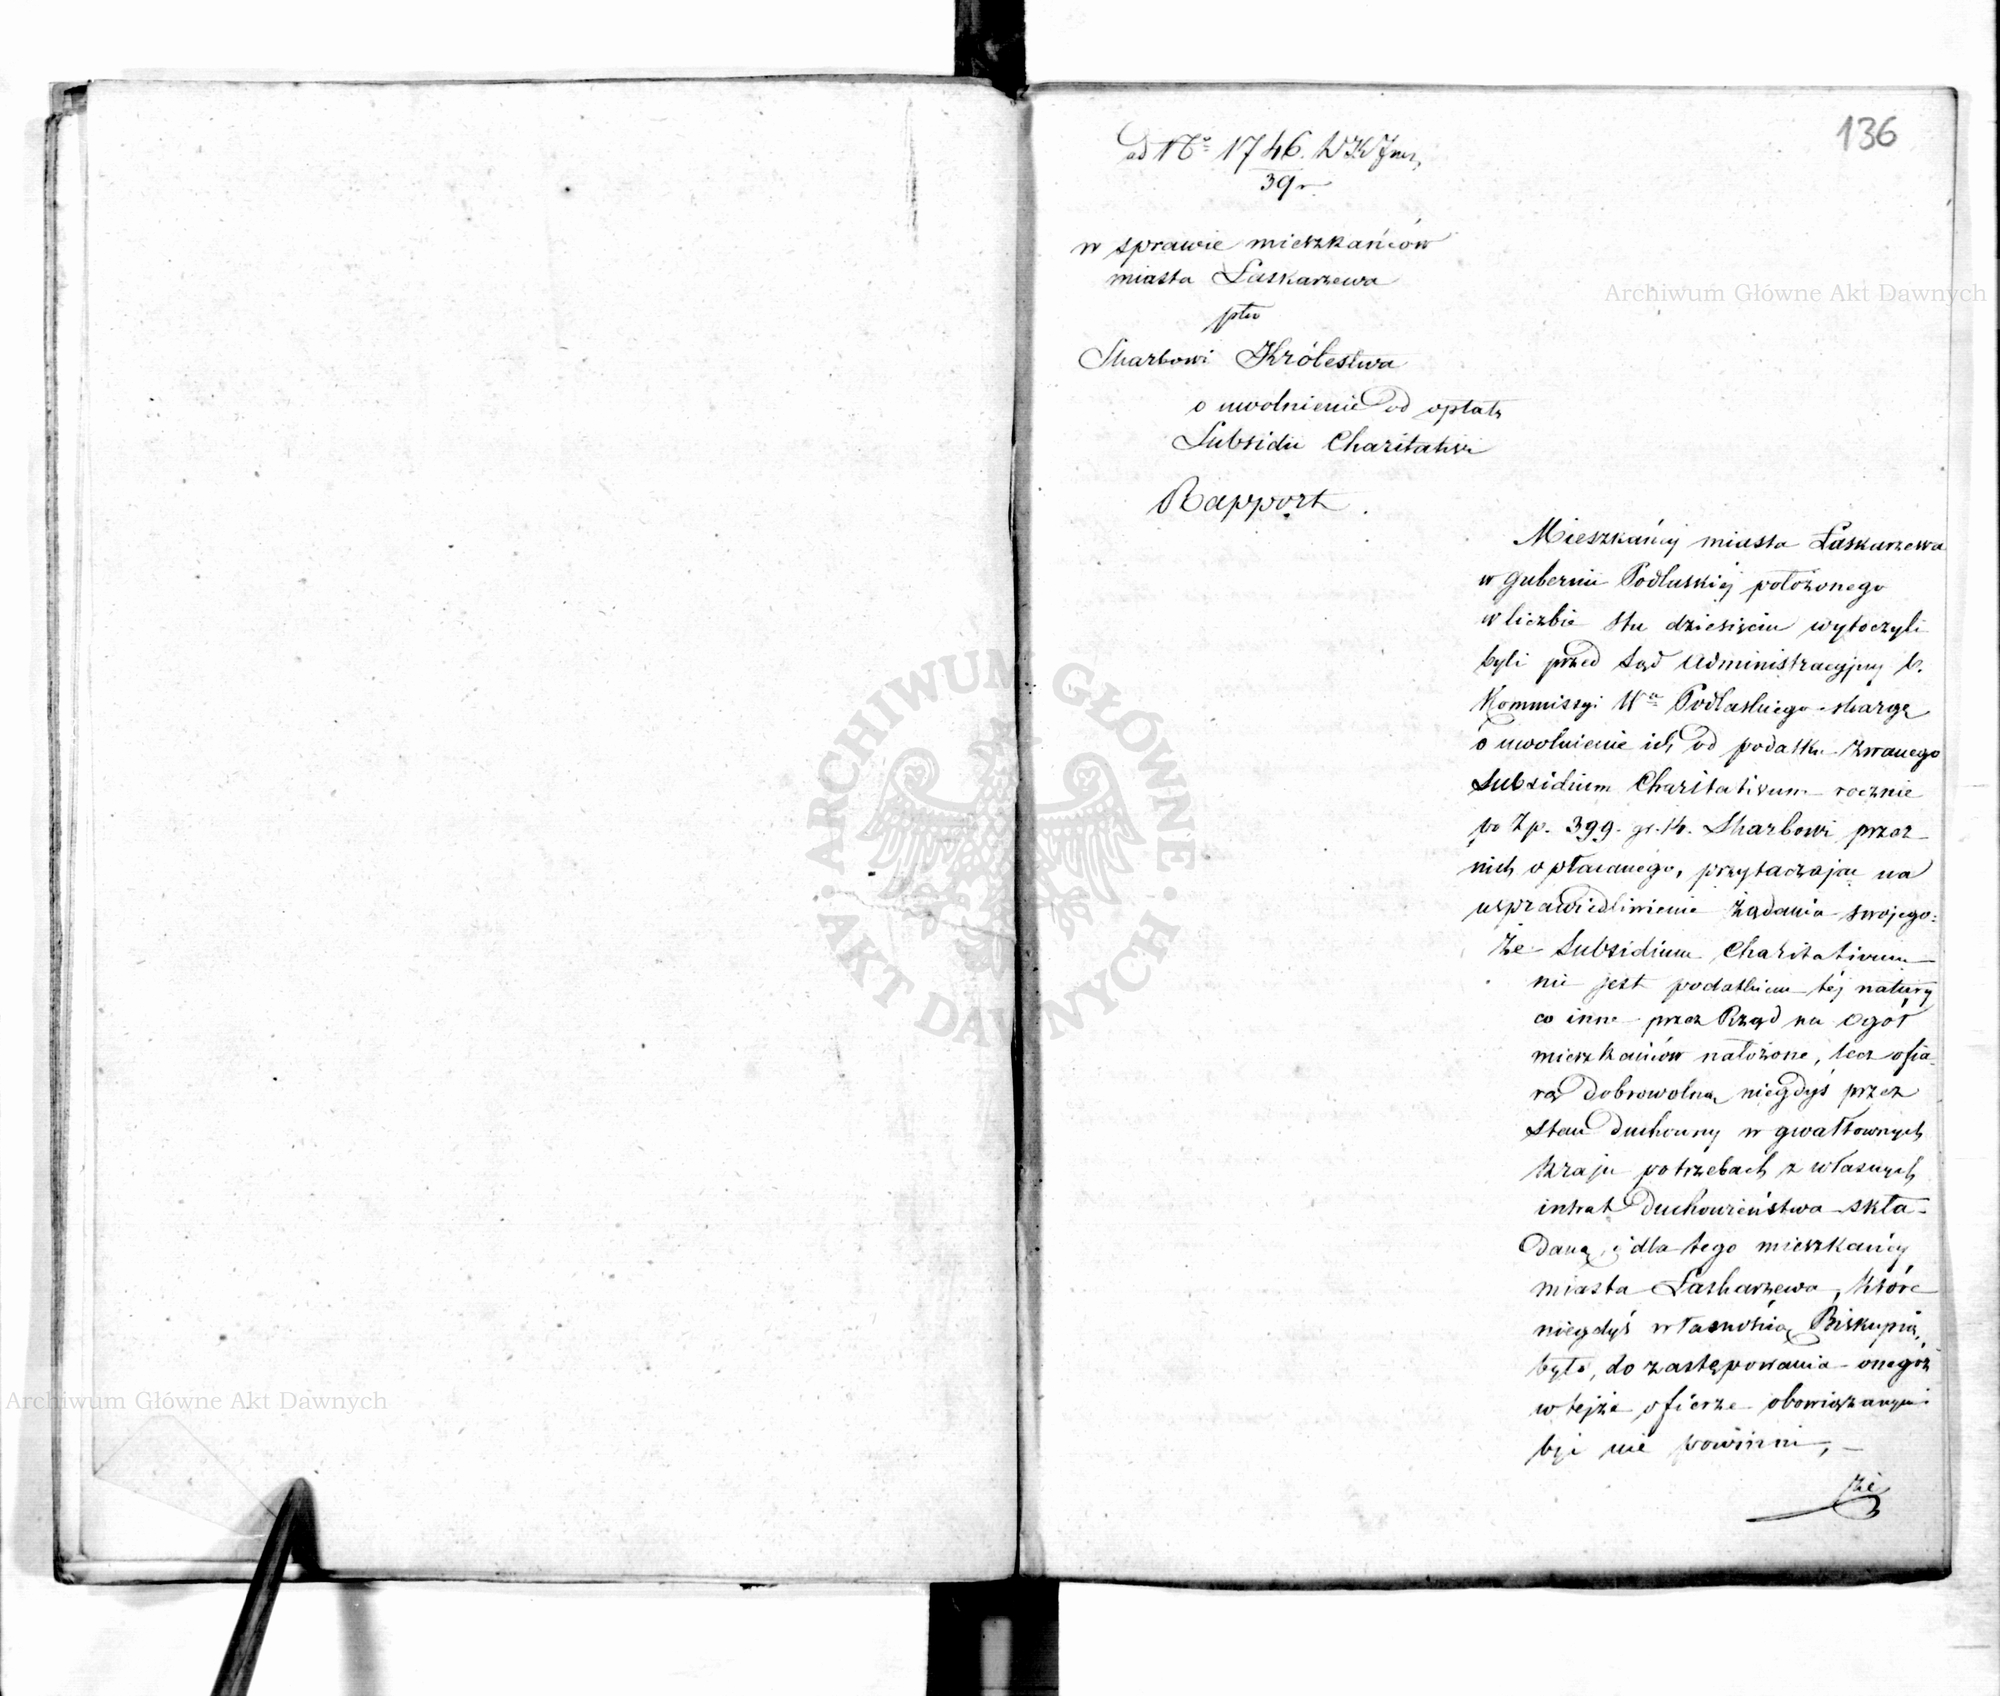 136
ad No 1746. WK
39 r
w sprawie mieszkańców
miasta Łaskarzewa
ptko
Skarbowi Królestwa
o uwolnienie od opłaty
Subsidii Charitativi
Rapport.
Mieszkańcy miasta Łaskarzewa
w gubernii Podlaskiéj położonego
w liczbie stu dziesięciu wytoczyli
byli przed Sąd Administracyjny b.
Kommissyi Wa Podlaskiego skargę
o uwolnienie ich od podatku zwanego
Subsidium Charitativum rocznie
po Zp. 399. gr. 14. Skarbowi przez
nich opłacanego, przytaczając na
usprawiedliwienie żądania swojego:
Że Subsidium Charitativum
nie jest podatkiem téj natury
co inne przez Rząd na ogół
mieszkańców nałożone, lecz ofia-
rą dobrowolną niegdyś przez
stan duchowny w gwałtownych
kraju potrzebach z własnych
intrat Duchowieństwa skła-
daną, i dla tego mieszkańcy
miasta Łaskarzewa, które
niegdyś własnością Biskupią
było, do zastępowania onegoż
w tejże ofierze obowiązanymi
być nie powinni,
że
Archiwum Główne Akt Dawnych
ARCHIWUM GŁÓWNE AKT DAWNYCH
AD
Archiwum Główne Akt Dawnych